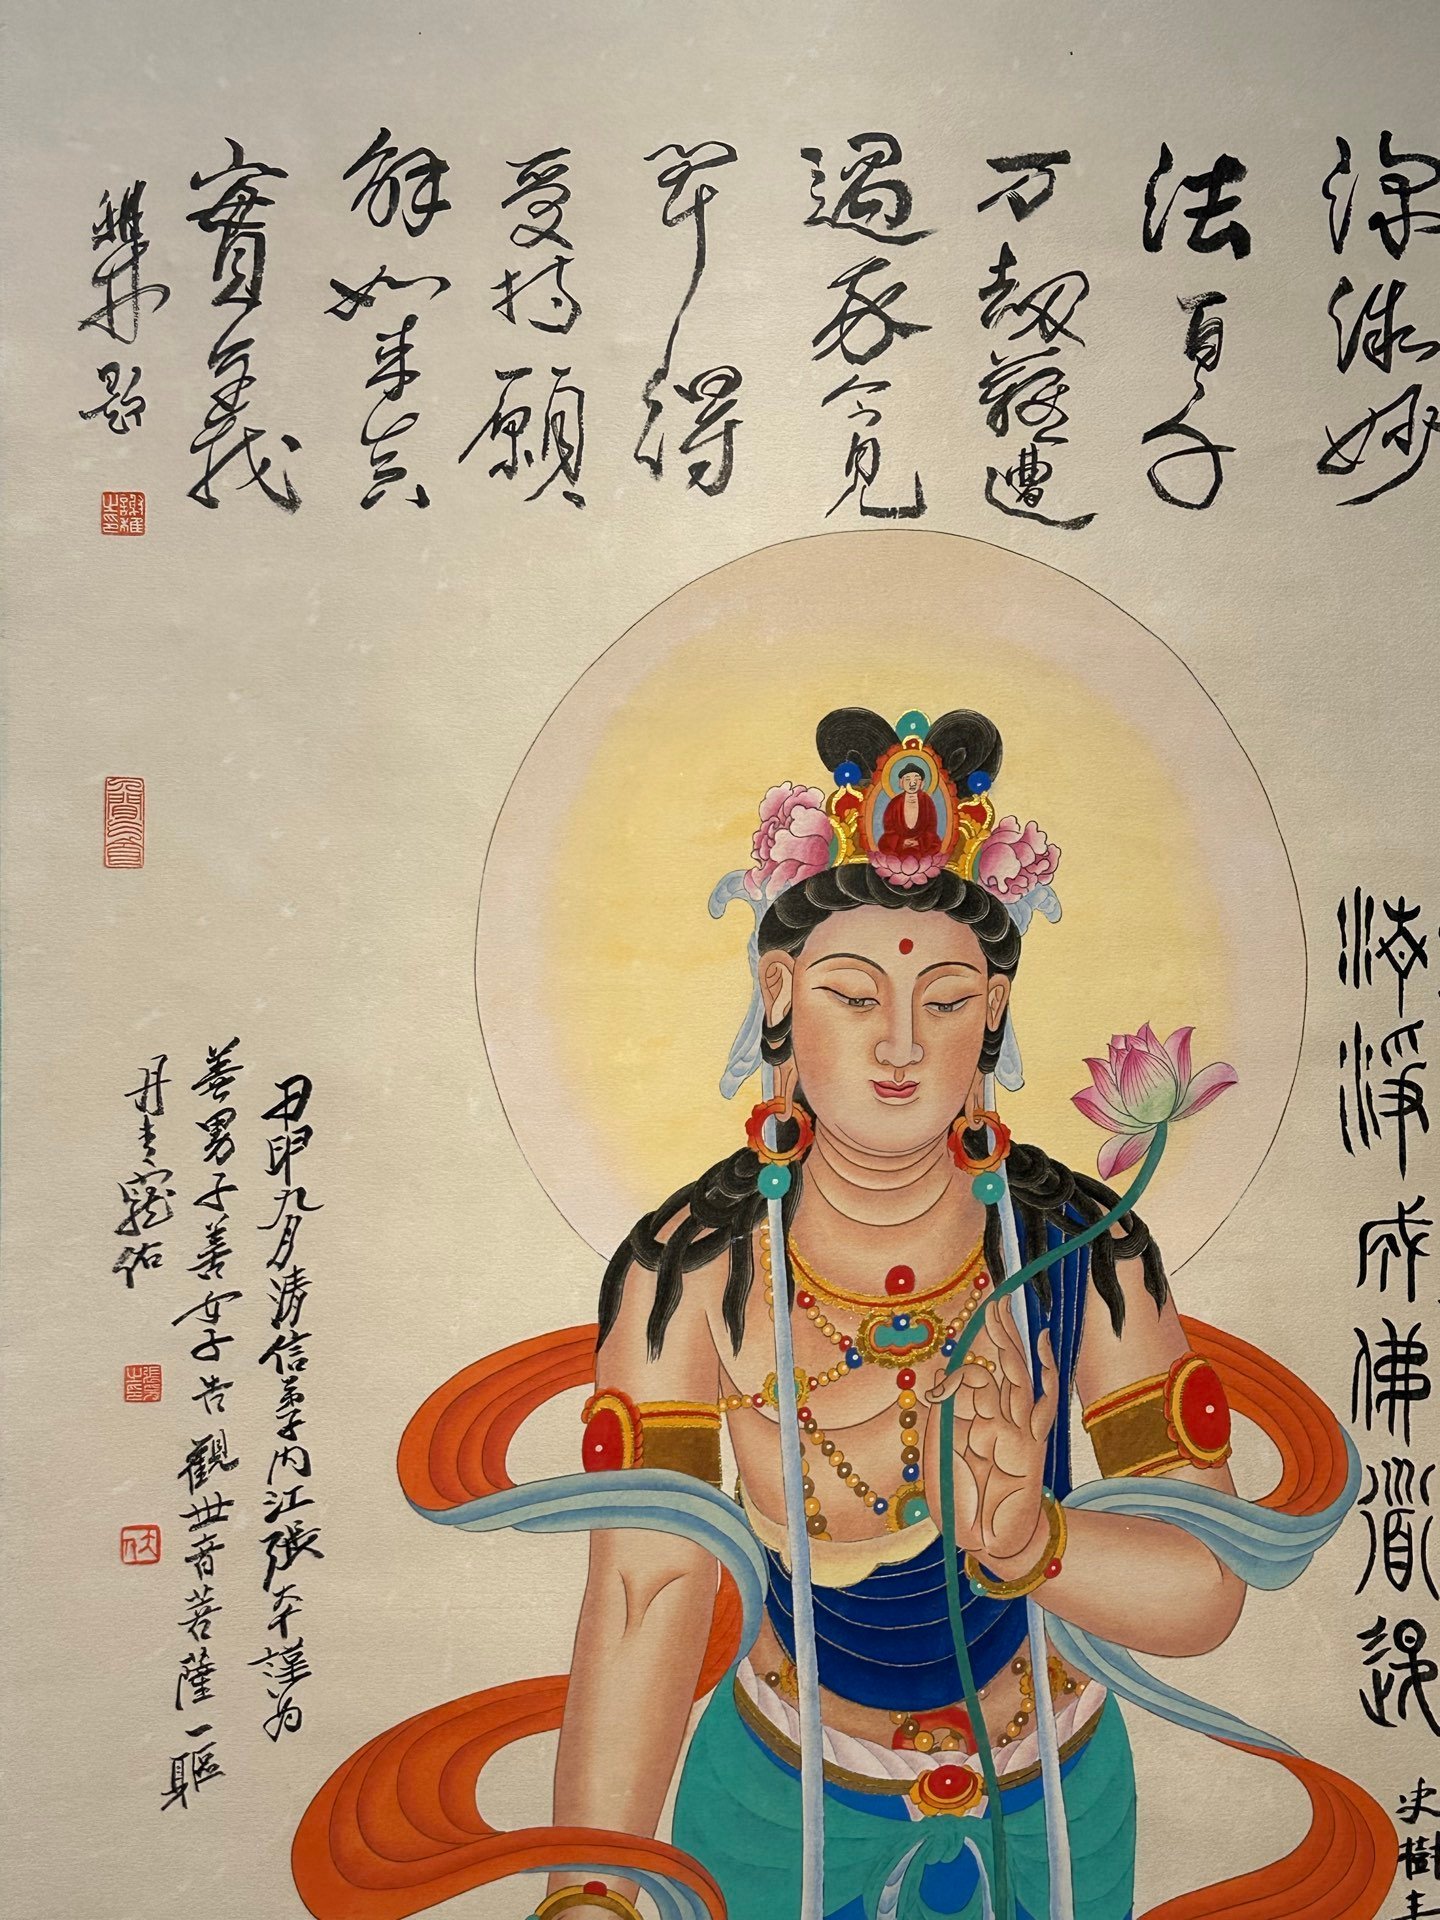 深微妙
法百千
万劫難遭
遇我今見
聞得
受持願
解如来真
實義
稚柳题
海淨成佛道
史樹青
甲申九月清信弟子内江張大千謹为
善男子善女子告觀世音菩薩一軀
丹青寵佑